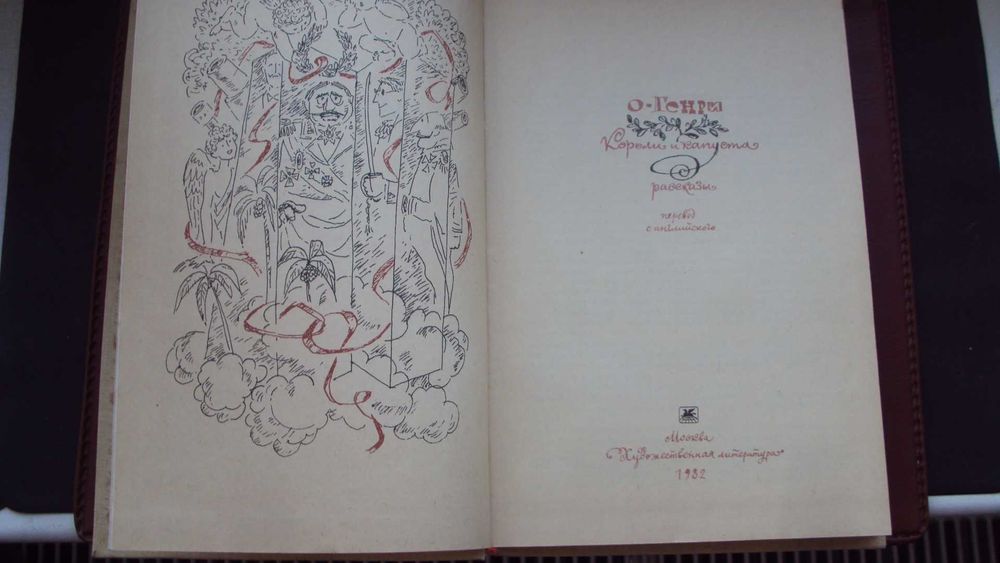 О·Генри
Короли и капуста
рассказы
перевод
с английского
Москва
"Художественная литература"
1982